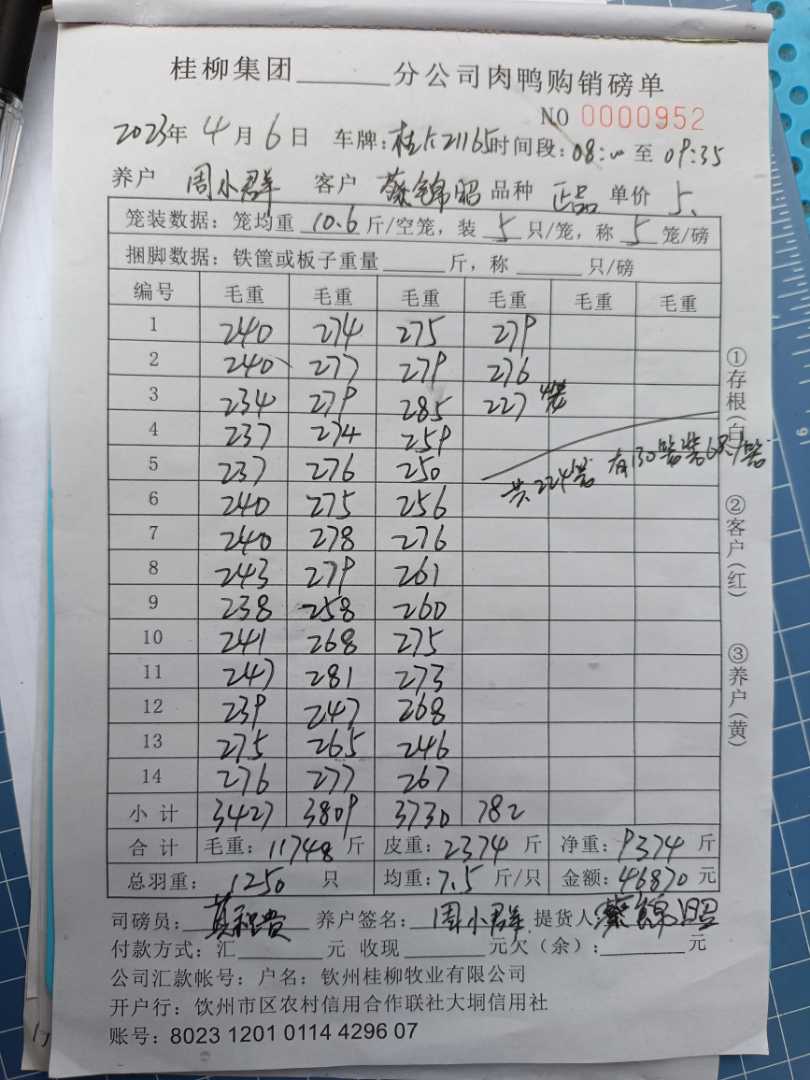 桂柳集团______分公司肉鸭购销磅单
NO 0000952
2023年 4 月 6 日 车牌:桂K21165 时间段:08:00 至 09:35
养户 周小群 客户 蔡锦昭 品种 正品 单价 5.
笼装数据:笼均重 10.6 斤/空笼,装 5 只/笼,称 5 笼/磅
捆脚数据:铁筐或板子重量______斤,称______只/磅
编号 毛重 毛重 毛重 毛重 毛重 毛重
1 240 274 275 279
2 240 277 279 276
3 234 279 285 227 4笼
4 237 274 259
5 237 276 250
共224笼 有130笼装6只/笼
6 240 275 256
7 240 278 276
8 243 279 261
9 238 258 260
10 241 268 275
11 247 281 273
12 239 247 268
13 275 265 246
14 276 277 267
小计 3427 3809 3730 782
合计 毛重:11748 斤 皮重:2374 斤 净重:9374 斤
总羽重: 1250 只 均重:7.5 斤/只 金额:46870 元
司磅员: 养户签名: 周小群 提货人 蔡锦昭
付款方式:汇______元 收现______元欠(余):______元
公司汇款帐号:户名:钦州桂柳牧业有限公司
开户行:钦州市区农村信用合作联社大垌信用社
账号:8023 1201 0114 4296 07
①存根(白)
②客户(红)
③养户(黄)